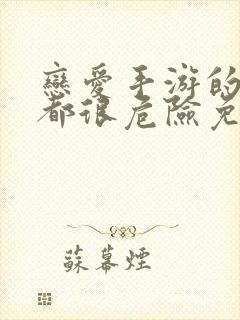 戀愛手游的
都很危險免
蘇幕煙